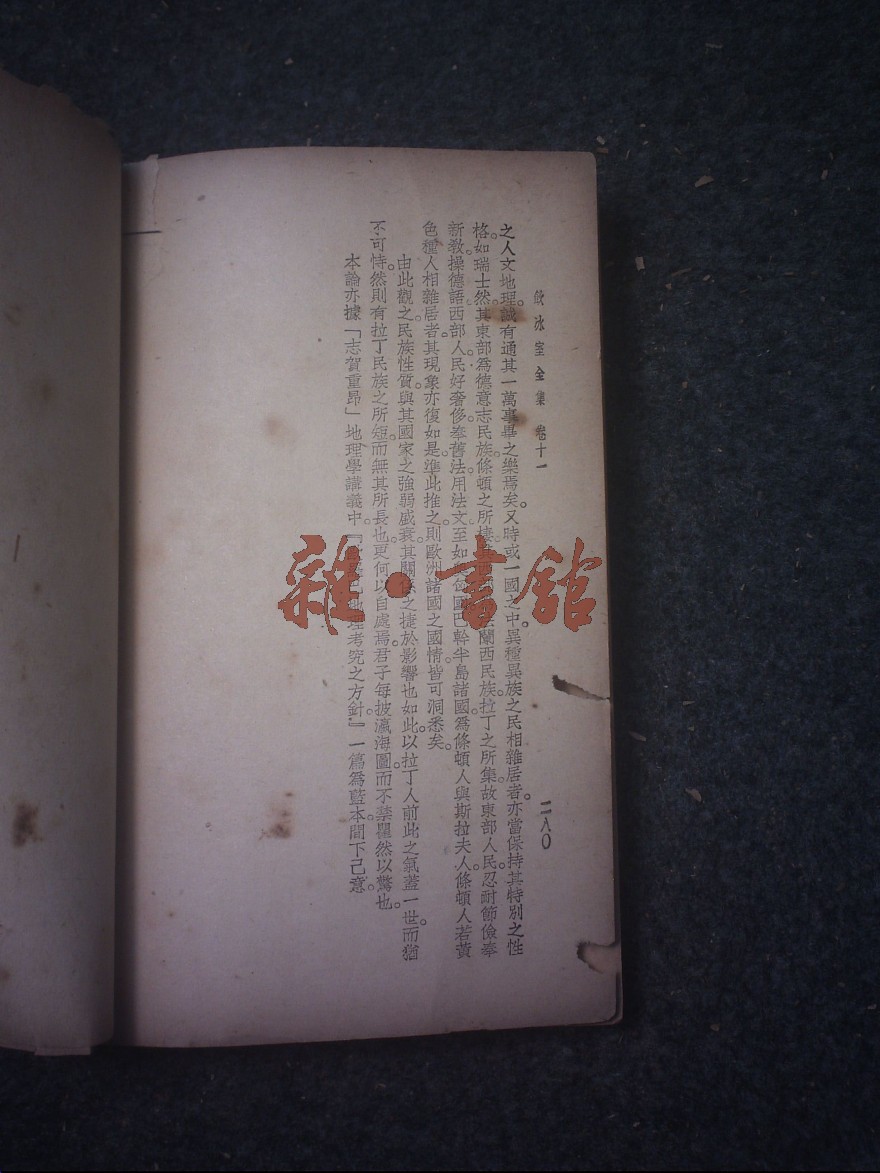 飲冰室全集 卷十一
二八〇
之人文地理。誠有通其一萬事畢之樂焉矣。又時或一國之中。異種異族之民相雜居者。亦當保持其特別之性
格。如瑞士然。其東部為德意志民族。條頓之所棲。蘭西民族。拉丁之所集。故東部人民。忍耐節儉。奉
新教。操德語。西部人民。好奢侈。奉舊法。用法文。至如國巴幹半島諸國。為條頓人與斯拉夫人。條頓人若黃
色種人相雜居者。其現象亦復如是。準此推之。則歐洲諸國之國情。皆可洞悉矣。
由此觀之。民族性質。與其國家之強弱盛衰。其關係之捷於影響也如此。以拉丁人前此之氣蓋一世。而猶
不可恃。然則有拉丁民族之所短而無其所長也。更何以自處焉。君子每披瀛海圖。而不禁瞿然以驚也。
本論亦據「志賀重昂」地理學講義中『地理考究之方針』一篇為藍本。間下己意。
雜·書館